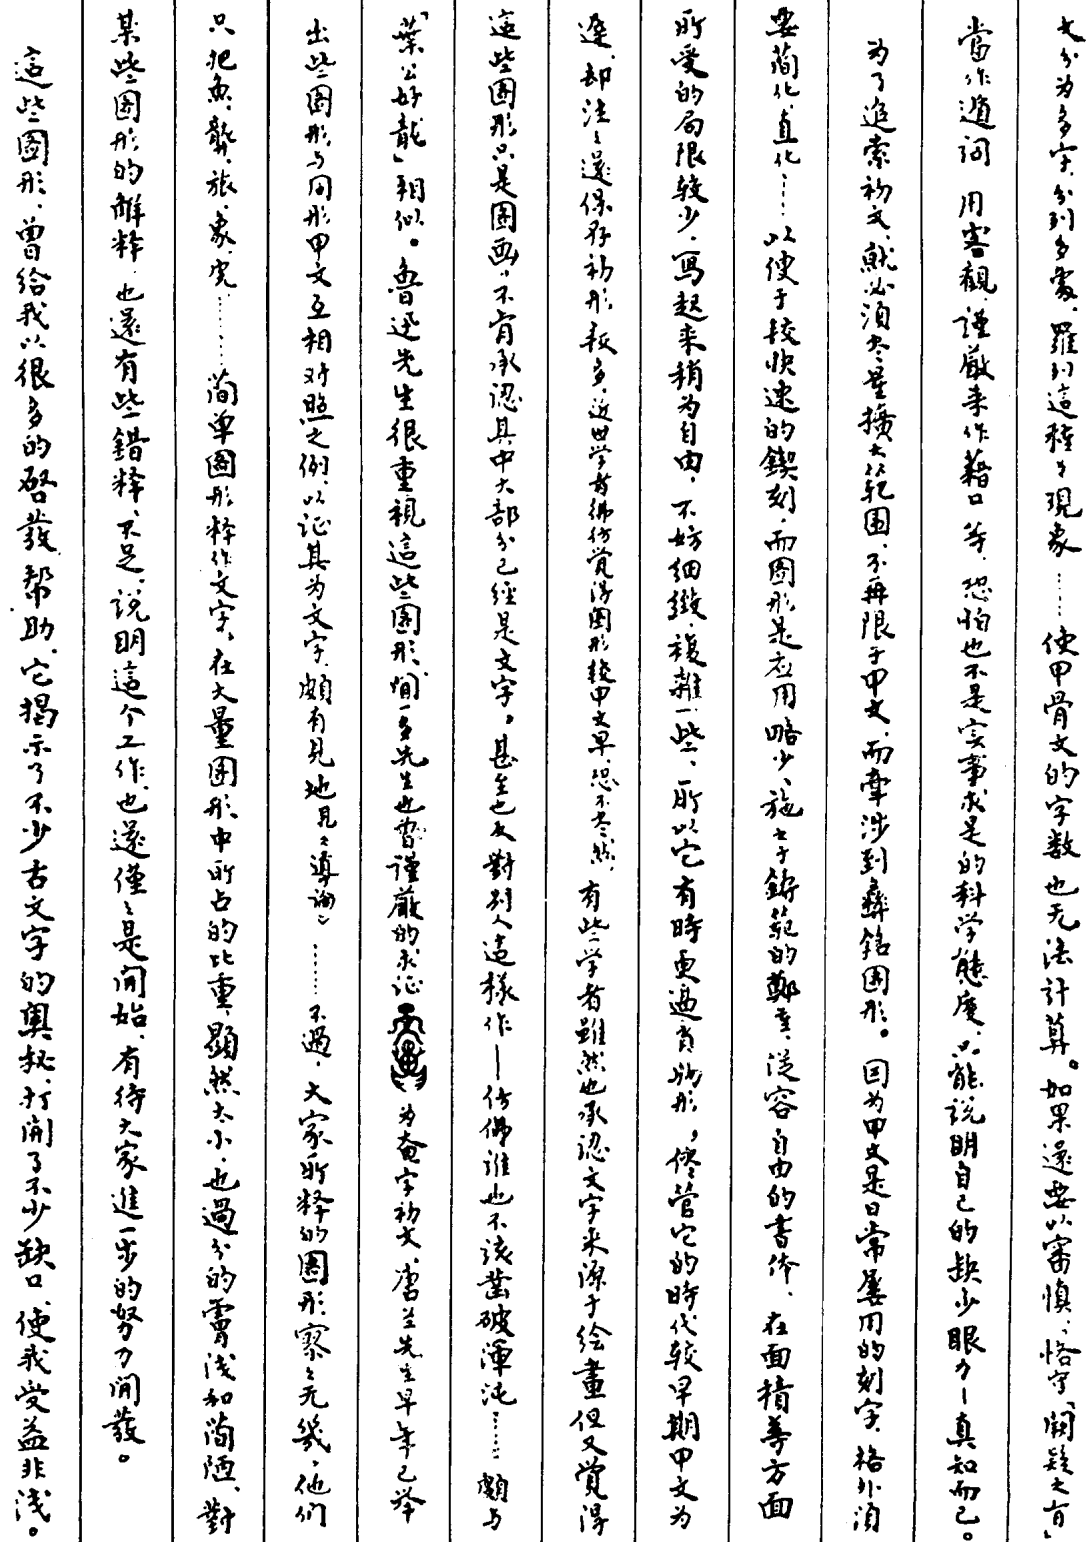 文分为多字、分列多處、羅列這種々現象……使甲骨文的字数也无法計算。如果還要以審慎、恪守「闕疑之旨」
當作遁词 用客觀、謹嚴来作藉口等、恐怕也不是实事求是的科学態度、只能說明自己的缺少眼力—真知而已。
为了追索初文、就必須尽量擴大範围、不再限于甲文、而牽涉到彝銘图形。因为甲文是日常屡用的刻字、格外須
要简化、直化……以便于較快速的鍥刻、而图形是应用略少、施之于鋳範的鄭重、從容自由的書体、在面積等方面
所受的局限較少、寫起来稍为自由、不妨细緻、複雜一些、所以它有時更逼肖物形。儘管它的時代較早期甲文为
遲、却往々還保存初形較多、近世学者彿仿覚得图形較甲文早、恐不尽然、有些学者雖然也承認文字来源于绘畫但又覚得
這些图形只是图画、不肯承認其中大部分已經是文字。甚至也反對别人這樣作—仿佛谁也不該鑿破渾沌……頗与
「葉公好龍」相似。魯迅先生很重視這些图形、聞一多先生也曾謹嚴的求证 为奄字初文、唐兰先生早年已举
出些图形与同形甲文互相对照之例、以证其为文字、頗有見地見「導論」……不過、大家所释的图形寥々无幾、他们
只把魚、龏、旅、象、……简单图形释作文字、在大量图形中所占的比重、顯然太小、也過分的膚浅和简陋、對
某些图形的解释、也還有些錯释、不足、说明這个工作、也還僅々是開始、有待大家進一步的努力開發。
這些图形、曾给我以很多的啓發、幫助、它揭示了不少古文字的奥秘、打開了不少缺口、使我受益非浅。